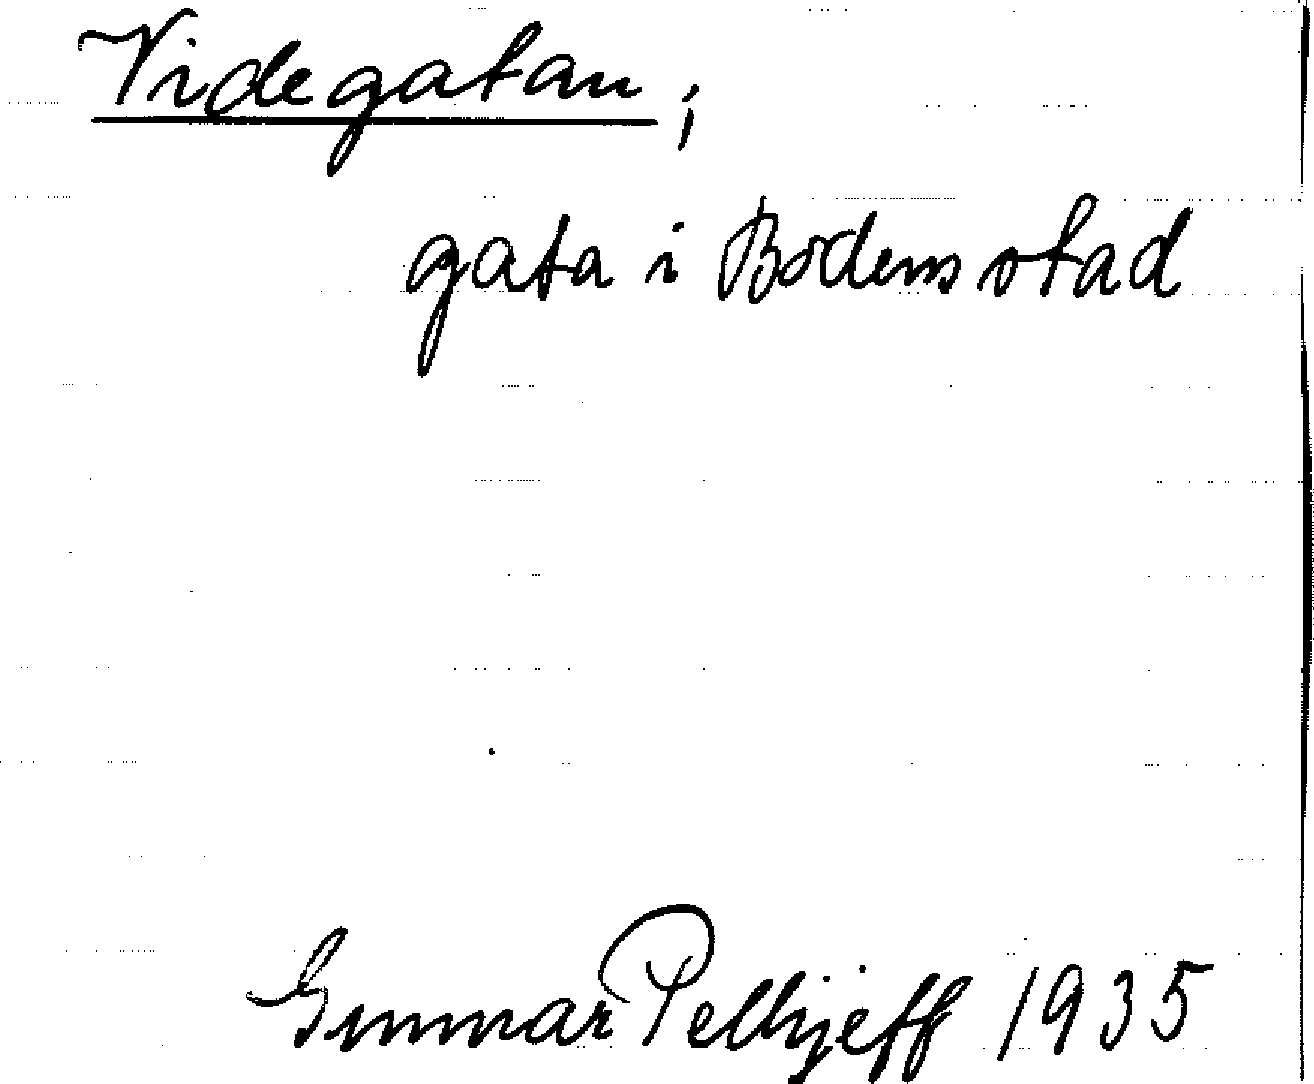 Videgatan,
gata i Bodens stad
Gunnar Pellijeff 1935